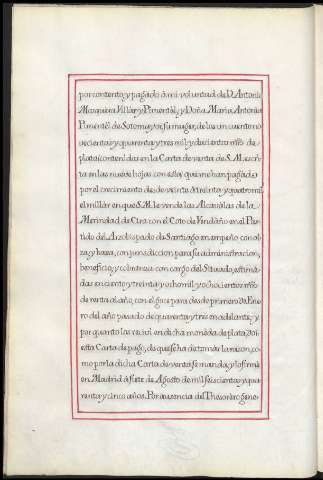 por contento y pagado à mi voluntad de D. Antonio
Mosquera Villar y Pimentèl, y Doña Maria Antonia
Pimentèl de Sotomayor, su muger, de los un cuento no
vecientos y quarenta y tres mil y docientos mrs. de
plata (contenidos en la Carta de venta de S. M. escrita
en las nueve hojas con esta) que me han pagado
por el crecimiento desde veinte à treinta y quatro mil
el millàr en que S. M. le vende las Alcavalas de la
Merindad de Cira con el Coto de Vendaño en el Par
tido del Arzobispado de Santiago en empeño con al
za, y baxa, con jurisdiccion para su administracion,
beneficio, y cobranza con cargo del Situado, estima
das en ciento y treinta y ocho mil y ochocientos mrs.
de renta al año, con el goce para desde primero de Ene
ro del año pasado de quarenta y tres en adelante; y
por quanto los recivi en dicha moneda de plata Doi
esta Carta de pago, de que se ha de tomàr la razon, co
mo por la dicha Carta de venta se manda; y lo firmè
en Madrid à siete de Agosto de mil seiscientos y qua
renta y cinco años. Por ausencia del Thesorero gene